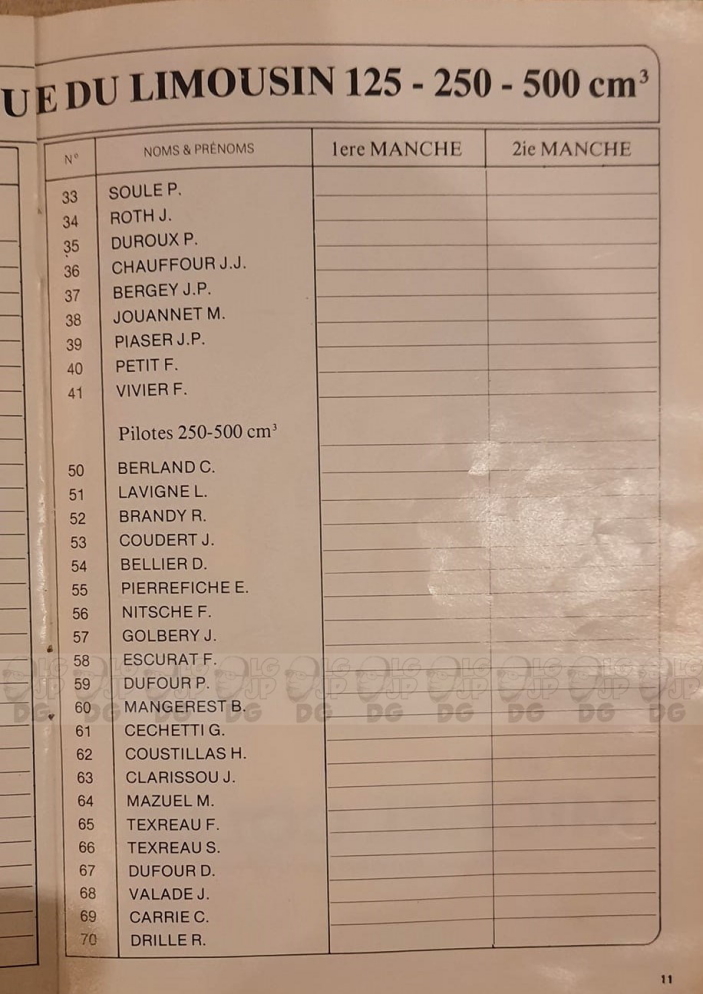 UE DU LIMOUSIN 125 - 250 - 500 cm³
N° NOMS & PRÉNOMS 1ere MANCHE 2ie MANCHE
33 SOULE P.
34 ROTH J.
35 DUROUX P.
36 CHAUFFOUR J.J.
37 BERGEY J.P.
38 JOUANNET M.
39 PIASER J.P.
40 PETIT F.
41 VIVIER F.
Pilotes 250-500 cm³
50 BERLAND C.
51 LAVIGNE L.
52 BRANDY R.
53 COUDERT J.
54 BELLIER D.
55 PIERREFICHE E.
56 NITSCHE F.
57 GOLBERY J.
58 ESCURAT F.
59 DUFOUR P.
60 MANGEREST B.
61 CECHETTI G.
62 COUSTILLAS H.
63 CLARISSOU J.
64 MAZUEL M.
65 TEXREAU F.
66 TEXREAU S.
67 DUFOUR D.
68 VALADE J.
69 CARRIE C.
70 DRILLE R.
11